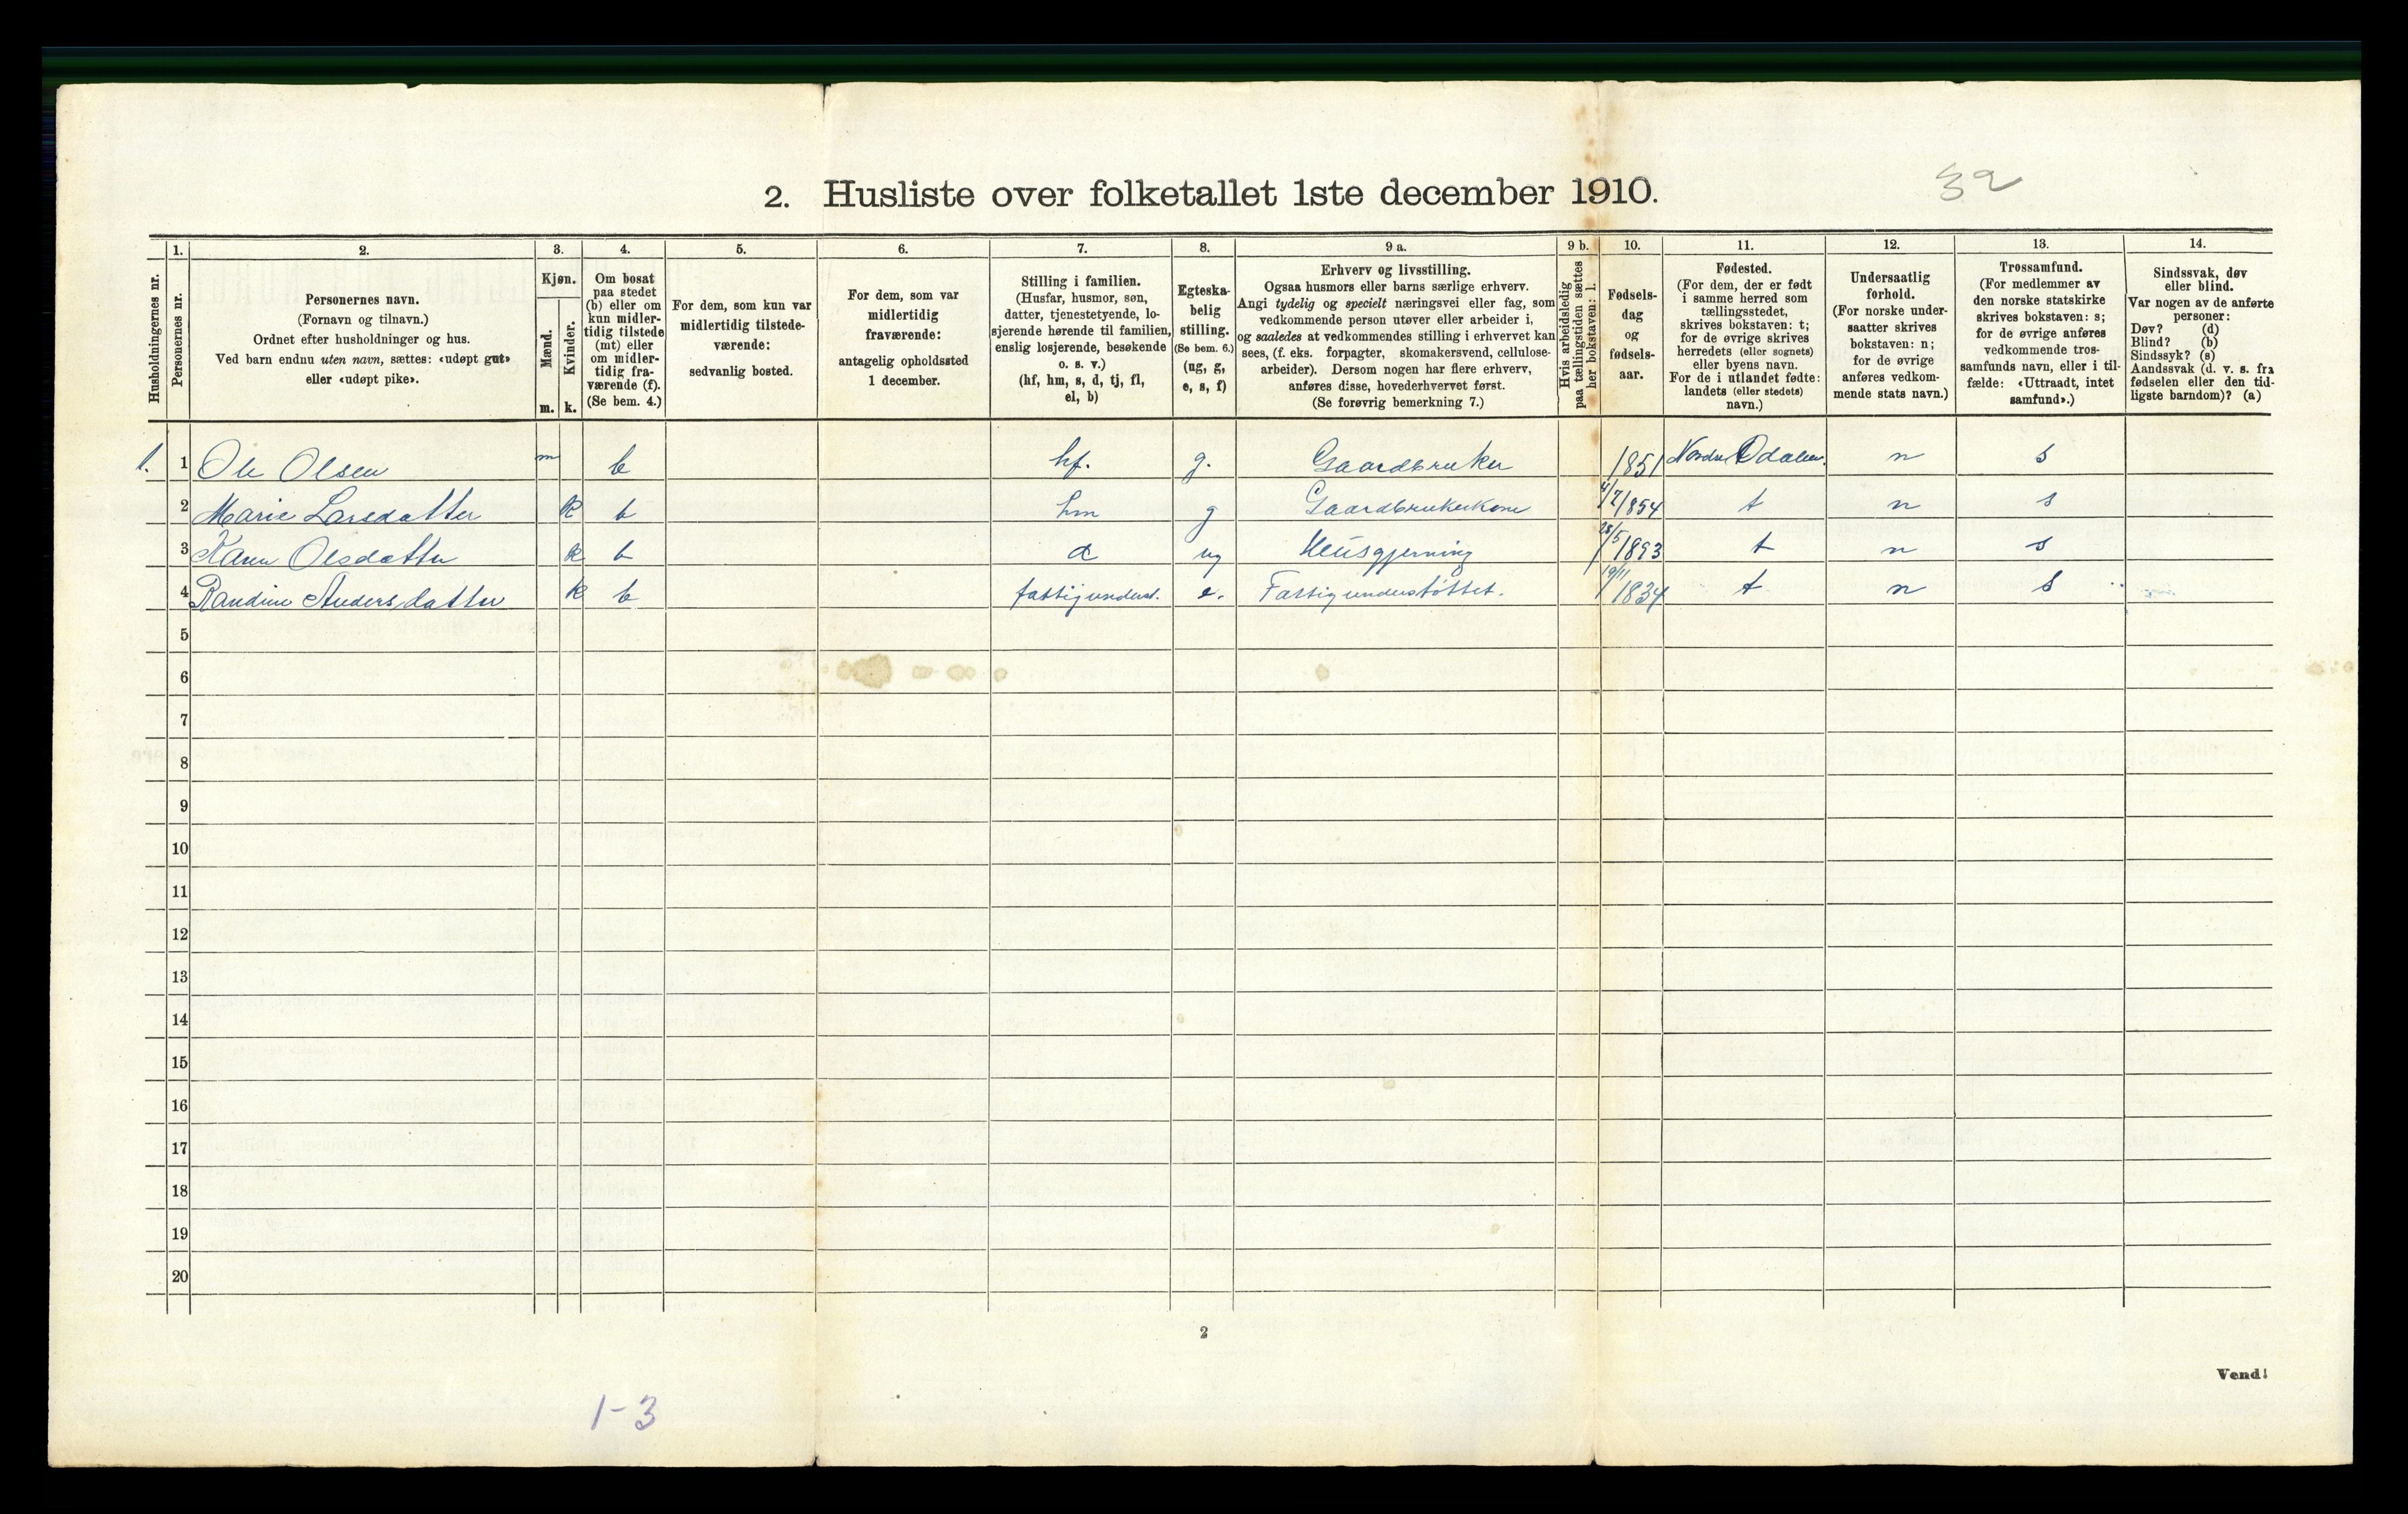 32
2. Husliste over folketallet 1ste december 1910.
Husholdningernes nr.
1.
Personernes nr.
2.
Personernes navn.
(Fornavn og tilnavn.)
Ordnet efter husholdninger og hus.
Ved barn endnu uten navn, sættes: «udøpt gut»
eller «udøpt pike».
3.
Kjøn.
Mænd.
Kvinder.
m. k.
4.
Om bosat
paa stedet
(b) eller om
kun midler-
tidig tilstede
(mt) eller
om midler-
tidig fra-
værende (f).
(Se bem. 4.)
5.
For dem, som kun var
midlertidig tilstede-
værende:
sedvanlig bosted.
6.
For dem, som var
midlertidig
fraværende:
antagelig opholdssted
1 december.
7.
Stilling i familien.
(Husfar, husmor, søn,
datter, tjenestetyende, lo-
sjerende hørende til familien,
enslig losjerende, besøkende
o. s. v.)
(hf, hm, s, d, tj, fl,
el, b)
8.
Egteska-
belig
stilling.
(Se bem. 6.)
(ug, g,
e, s, f)
9 a.
Erhverv og livsstilling.
Ogsaa husmors eller barns særlige erhverv.
Angi tydelig og specielt næringsvei eller fag, som
vedkommende person utøver eller arbeider i,
og saaledes at vedkommendes stilling i erhvervet kan
sees, (f. eks. forpagter, skomakersvend, cellulose-
arbeider). Dersom nogen har flere erhverv,
anføres disse, hovederhvervet først.
(Se forøvrig bemerkning 7.)
9 b.
Hvis arbeidsledig
paa tællingstiden sættes
her bokstaven: l.
10.
Fødsels-
dag
og
fødsels-
aar.
11.
Fødested.
(For dem, der er født
i samme herred som
tællingsstedet,
skrives bokstaven: t;
for de øvrige skrives
herredets (eller sognets)
eller byens navn.
For de i utlandet fødte:
landets (eller stedets)
navn.)
12.
Undersaatlig
forhold.
(For norske under-
saatter skrives
bokstaven: n;
for de øvrige
anføres vedkom-
mende stats navn.)
13.
Trossamfund.
(For medlemmer av
den norske statskirke
skrives bokstaven: s;
for de øvrige anføres
vedkommende tros-
samfunds navn, eller i til-
fælde: «Uttraadt, intet
samfund».)
14.
Sindssvak, døv
eller blind.
Var nogen av de anførte
personer:
Døv? (d)
Blind? (b)
Sindssyk? (s)
Aandssvak (d. v. s. fra
fødselen eller den tid-
ligste barndom)? (a)
1. 1 Ole Olsen m b hf. g. Gaardbruker 1851 Nordre Odalen. n s
2 Marie Larsdatter k b hm g Gaardbrukerkone 4/7 1854 t n s
3 Karen Olsdatter k b d ug Husgjerning 28/5 1893 t n s
4 Randine Andersdatter k b fattigunderst. e. Fattigunderstöttet. 19/11 1834 t n s
5
6
7
8
9
10
11
12
13
14
15
16
17
18
19
20
2
Vend!
1-3